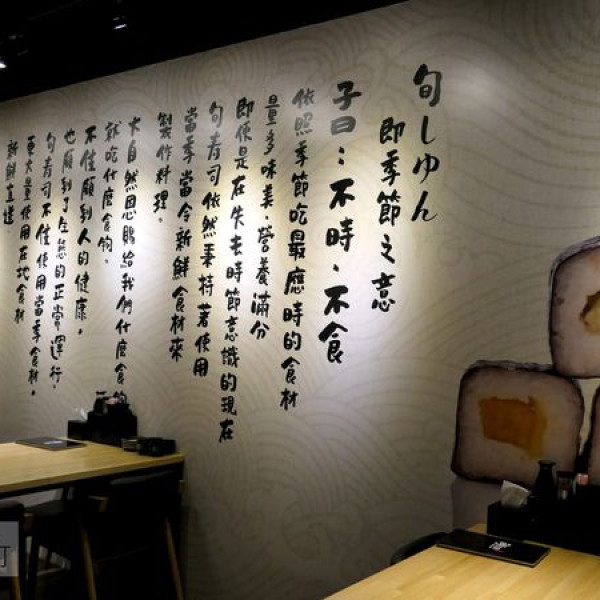 旬しゅん
即季節之意
子曰：不時、不食
依照季節吃最應時的食材
量多味美，營養滿分
即便是在失去時節意識的現在
旬壽司依然秉持著使用
當季當令新鮮食材來
製作料理。
大自然恩賜給我們什麼食
就吃什麼食物。
不僅顧到人的健康，
也顧到了生態的正常運行，
旬壽司不僅使用當季食材，
更大量使用在地食材
新鮮直達
町